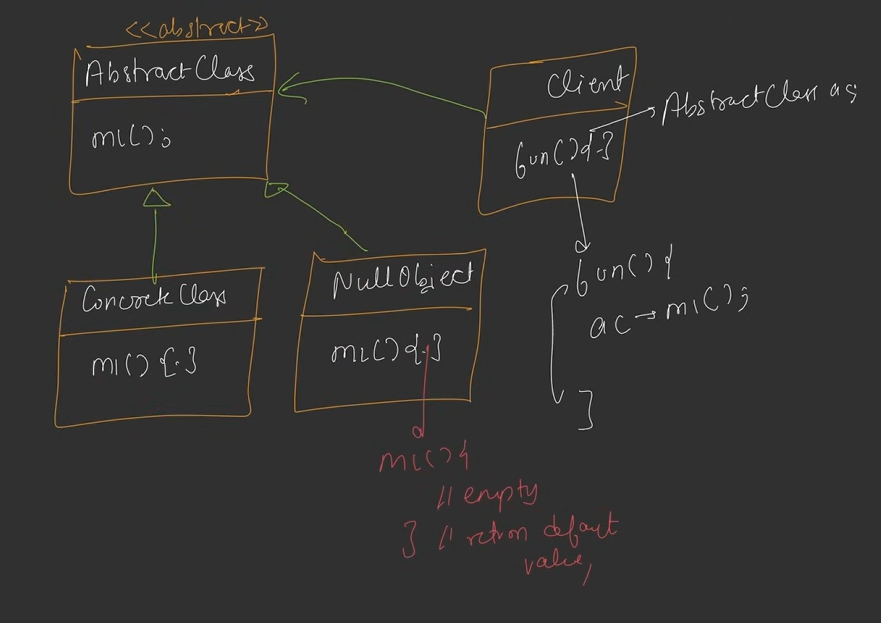 <<abstract>>
AbstractClass
m1();
Client
fun(){.}
AbstractClass ac;
ConcreteClass
m1(){.}
NullObject
m1(){.}
fun(){
ac→m1();
}
m1(){
// empty
} // return default
value;